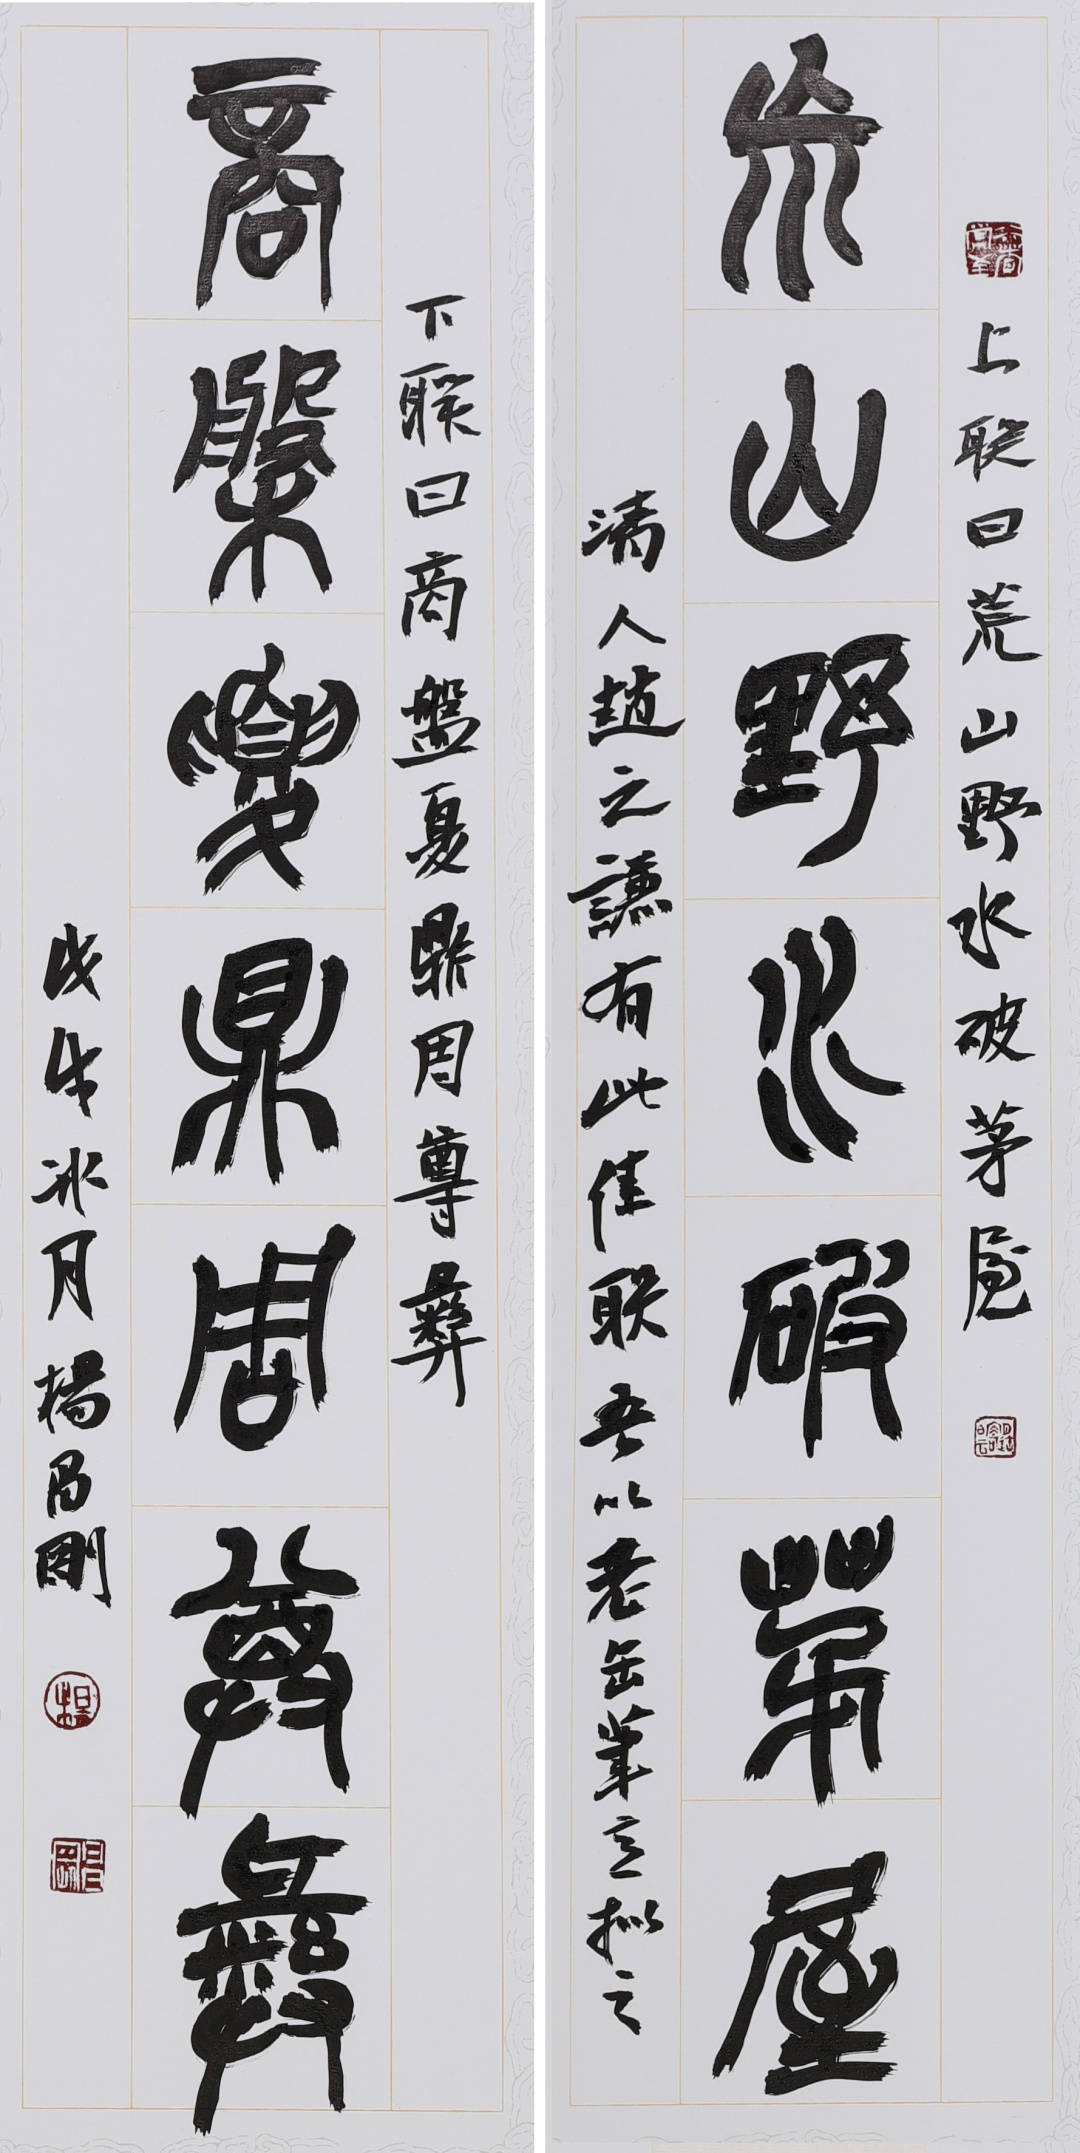 上联曰荒山野水破茅屋
㠩山野水破茅屋
清人赵之谦有此佳联吾以老缶笔意拟之
下联曰商盘夏鼎周尊彝
商槃夏鼎周尊彝
戊戌冰月楊昌剛